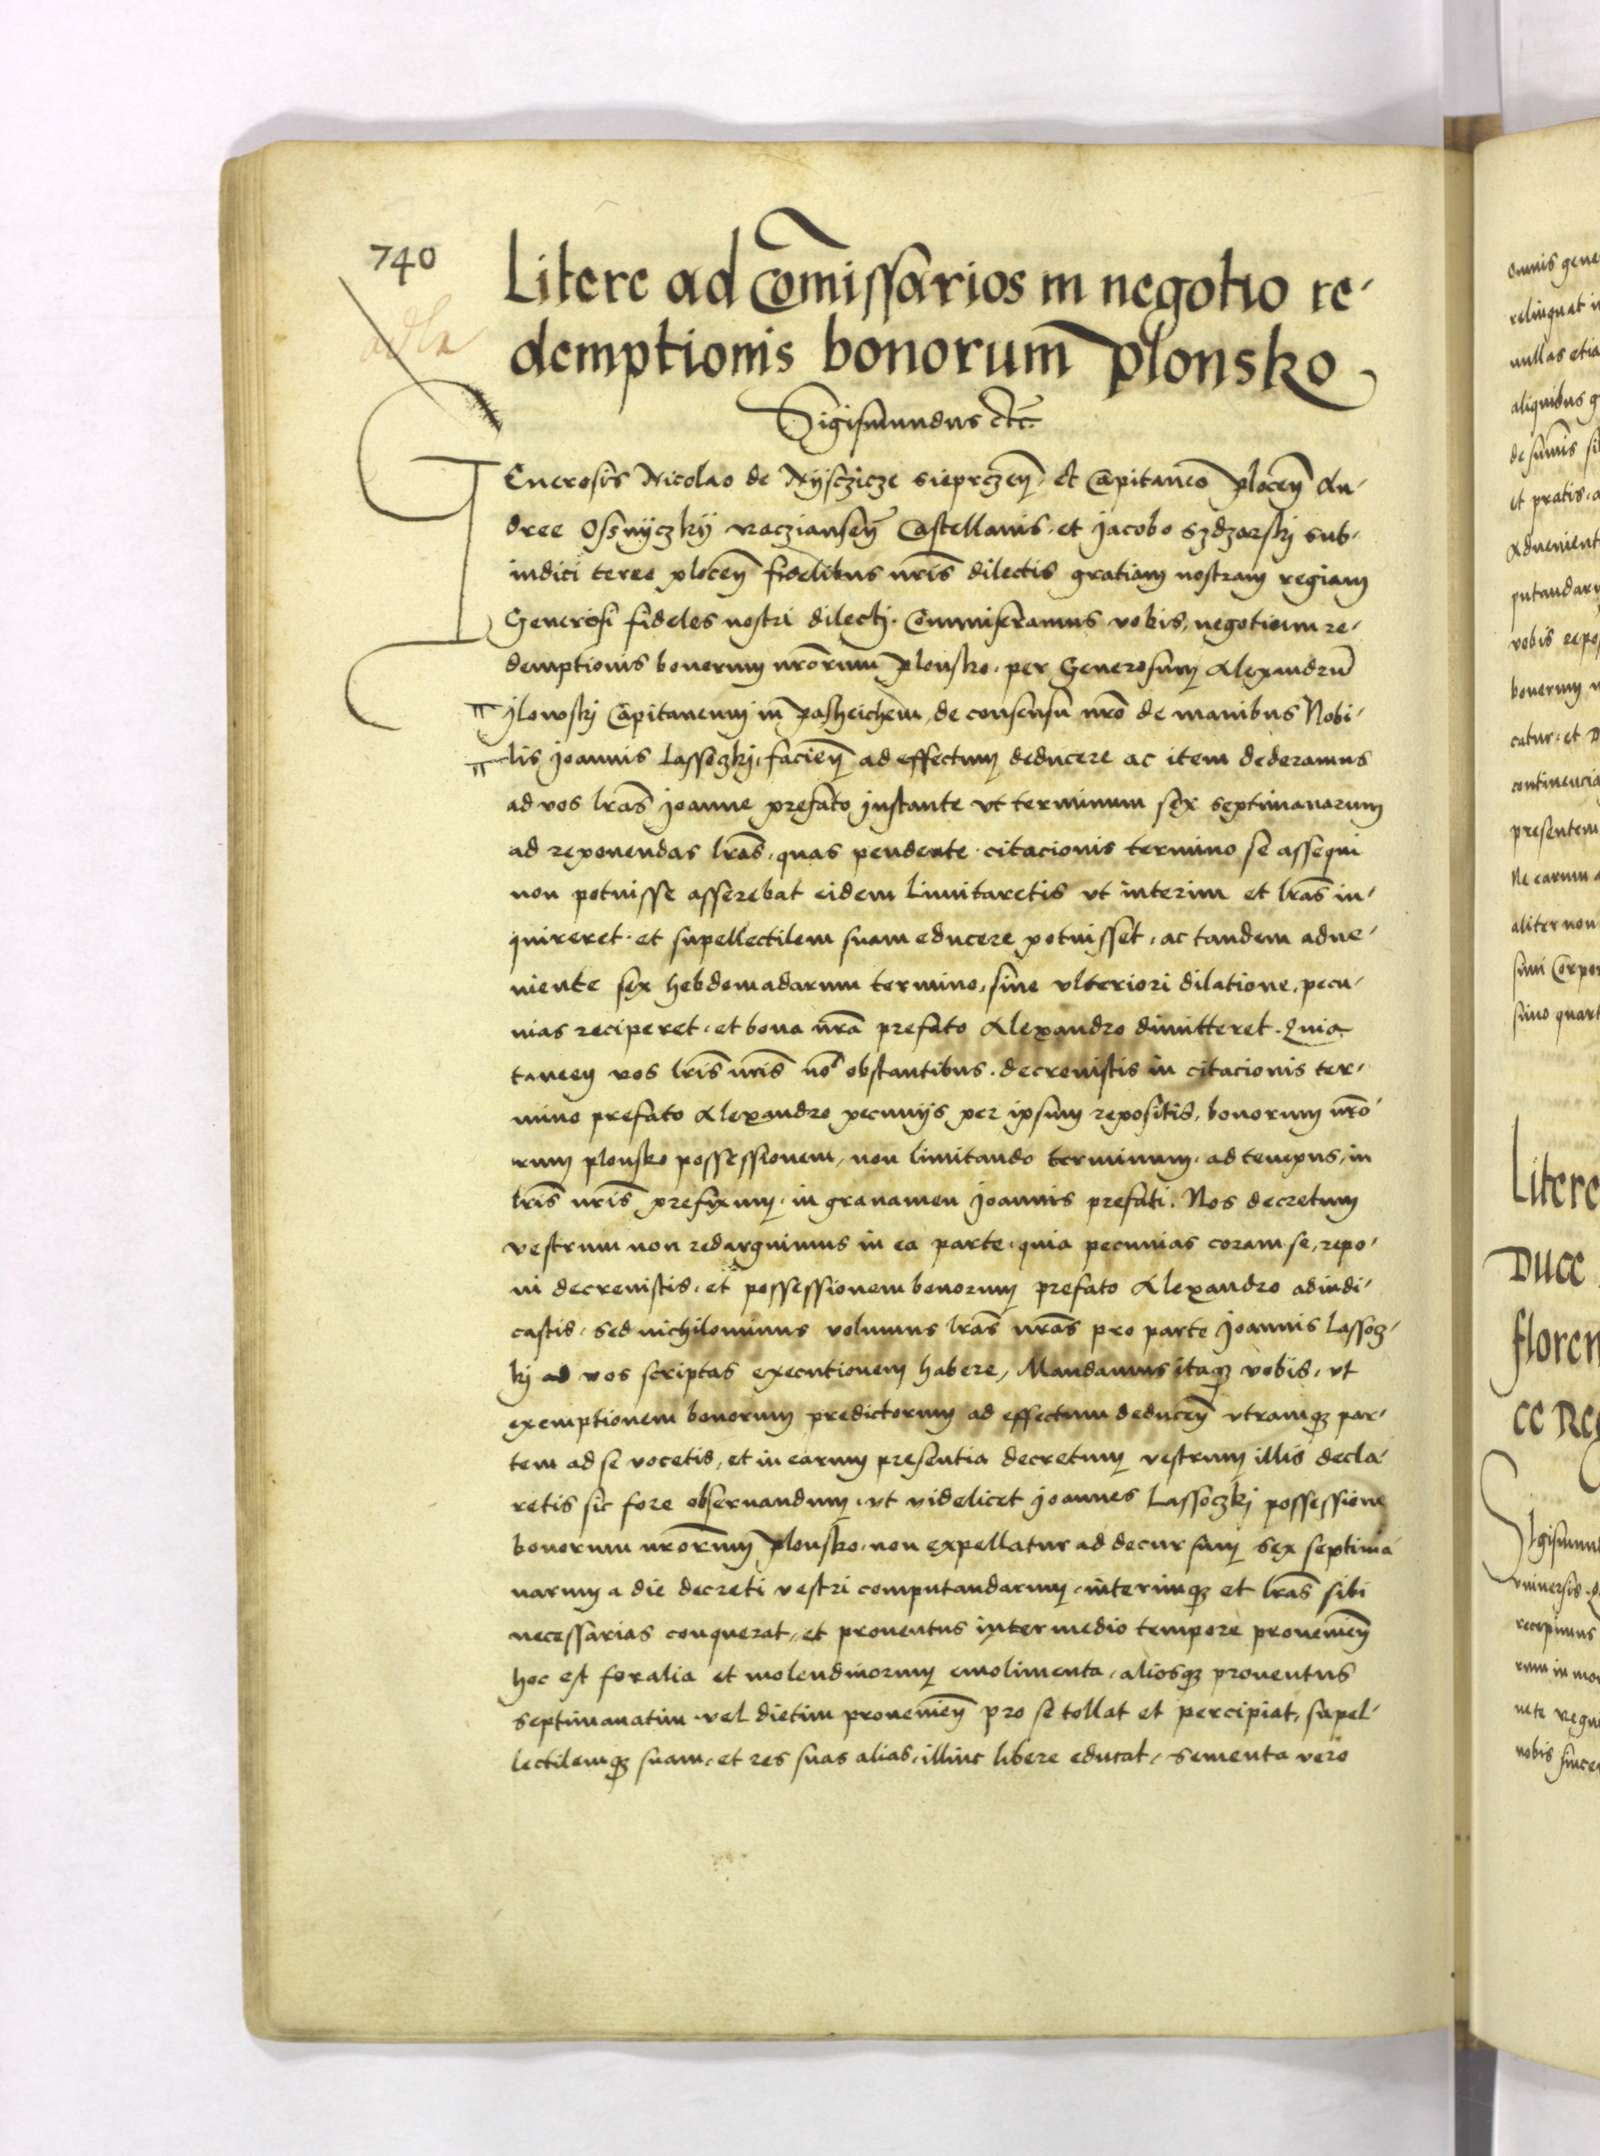 740
Litere ad Comissarios in negotio re-
demptionis bonorum Plonsko
Sigismundus etc.
Generosis Nicolao de Nysczicze Sieprczen̄. et Capitaneo Plocen̄ An-
dree Ossnyczkÿ Racziansen̄ Castellanis. et Jacobo Szdzarskj sub-
iudici terre plocen̄ fidelibus nr̄is dilectis gratiam nostram regiam
Generosi fideles nostri dilecti. Commiseramus vobis, negotium re-
demptionis bonorum nr̄orum Plonsko. per Generosum Alexandrū
Jlowskj Capitaneum in Pasheichem, de consensu nr̄o de manibus Nobi-
lis Joannis Lassoczkj, facien̄ ad effectum deducere ac item dederamus
ad vos lr̄as Joanne prefato instante vt terminum sex septimanarum
ad reponendas lr̄as. quas pendente. citacionis termino se assequi
non potuisse asserebat eidem limitaretis vt interim et lr̄as in-
quireret. et supellectilem suam educere potuisset. ac tandem adue-
niente sex hebdomadarum termino, sine vlteriori dilatione, pecu-
nias reciperet. et bona nr̄a prefato Alexandro dimitteret. Quia
tamen vos lr̄is nr̄is nō obstantibus. decreuistis in citacionis ter-
mino prefato Alexandro pecunijs per ipsum repositis, bonorum nr̄o-
rum plonsko possessionem, non limitando terminum. ad tempus, in
lr̄is nr̄is prefixum. in grauamen Joannis prefati. Nos decretum
vestrum non redarguimus in ea parte. quia pecunias coram se, repo-
ni decreuistis. et possessionem bonorum prefato Alexandro adiudi-
castis. sed nichilominus volumus lr̄as nr̄as pro parte Joannis Lassocz-
kj ad vos scriptas executionem habere, Mandamus itaqꝫ vobis, vt
exemptionem bonorum predictorum ad effectum deducen̄ vtramqꝫ par-
tem ad se vocetis, et in earum presentia decretum vestrum illis decla-
retis sic fore obseruandum. vt videlicet Joannes Lassoczkj possessione
bonorum nr̄orum Plonsko. non expellatur ad decursum sex septima
narum a die decreti vestri computandarum. interimqꝫ et lr̄as sibi
necessarias conquerat, et prouentus intermedio tempore prouenien̄
hoc est foralia et molendinorum emolimenta. aliosqꝫ prouentus
septimanatim. vel dietim prouenien̄ pro se tollat et percipiat, supel-
lectilemqꝫ suam. et res suas alias. illinc libere educat. sementa vero
omnis gene
relinquat
nullas etia
aliquibus g
et pratis. a
Aduenient
putandaru
vobis repo
bonorum
catur. et
continencia
presentem
Ne earum a
aliter non
Litere
Duce
floren
ce Re
vniuersis
recepimus
nobis